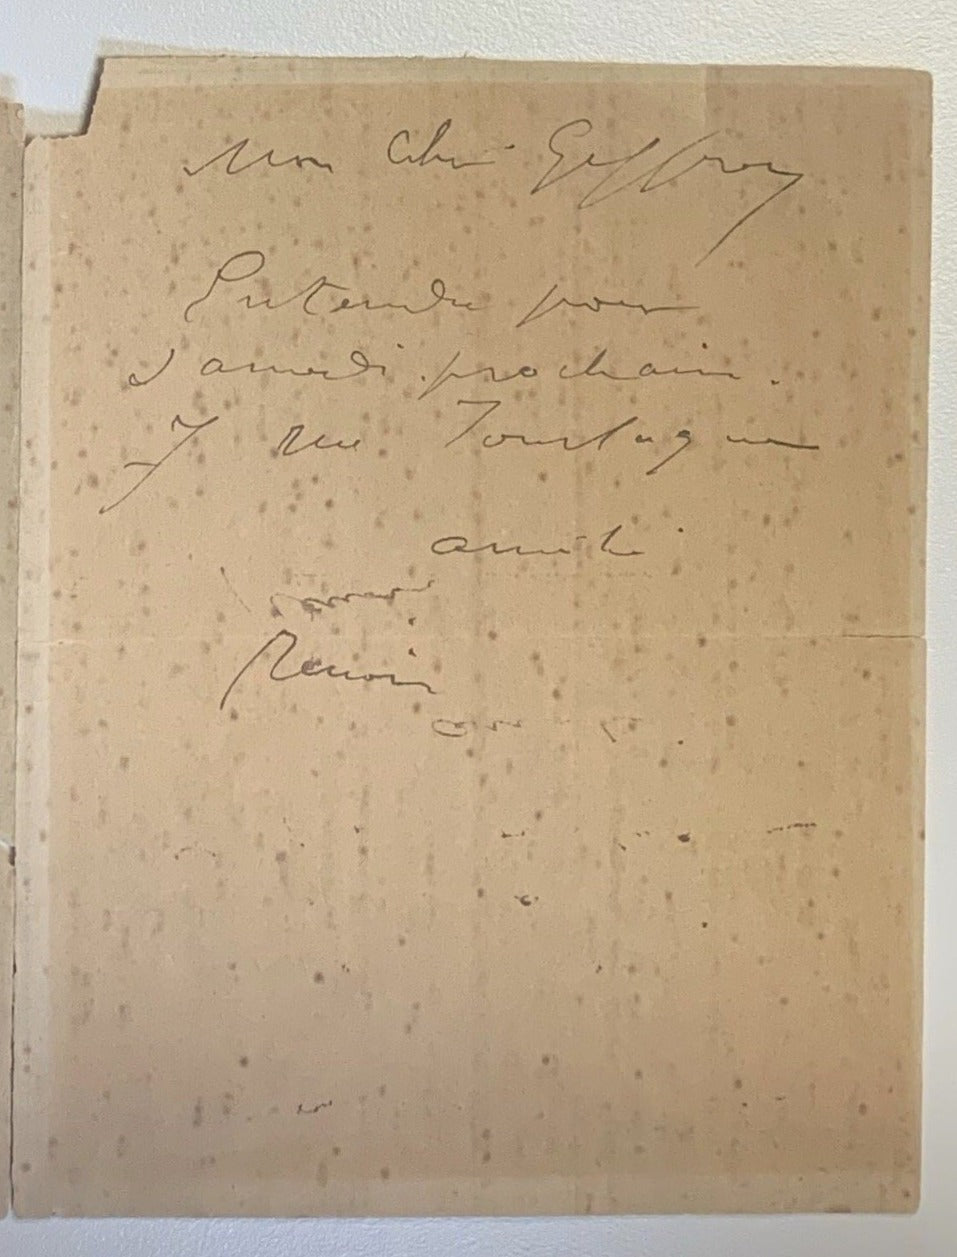 Mon cher Geffroy
Entendu pour
samedi prochain.
7 rue Tourlaque
amitié
Renoir